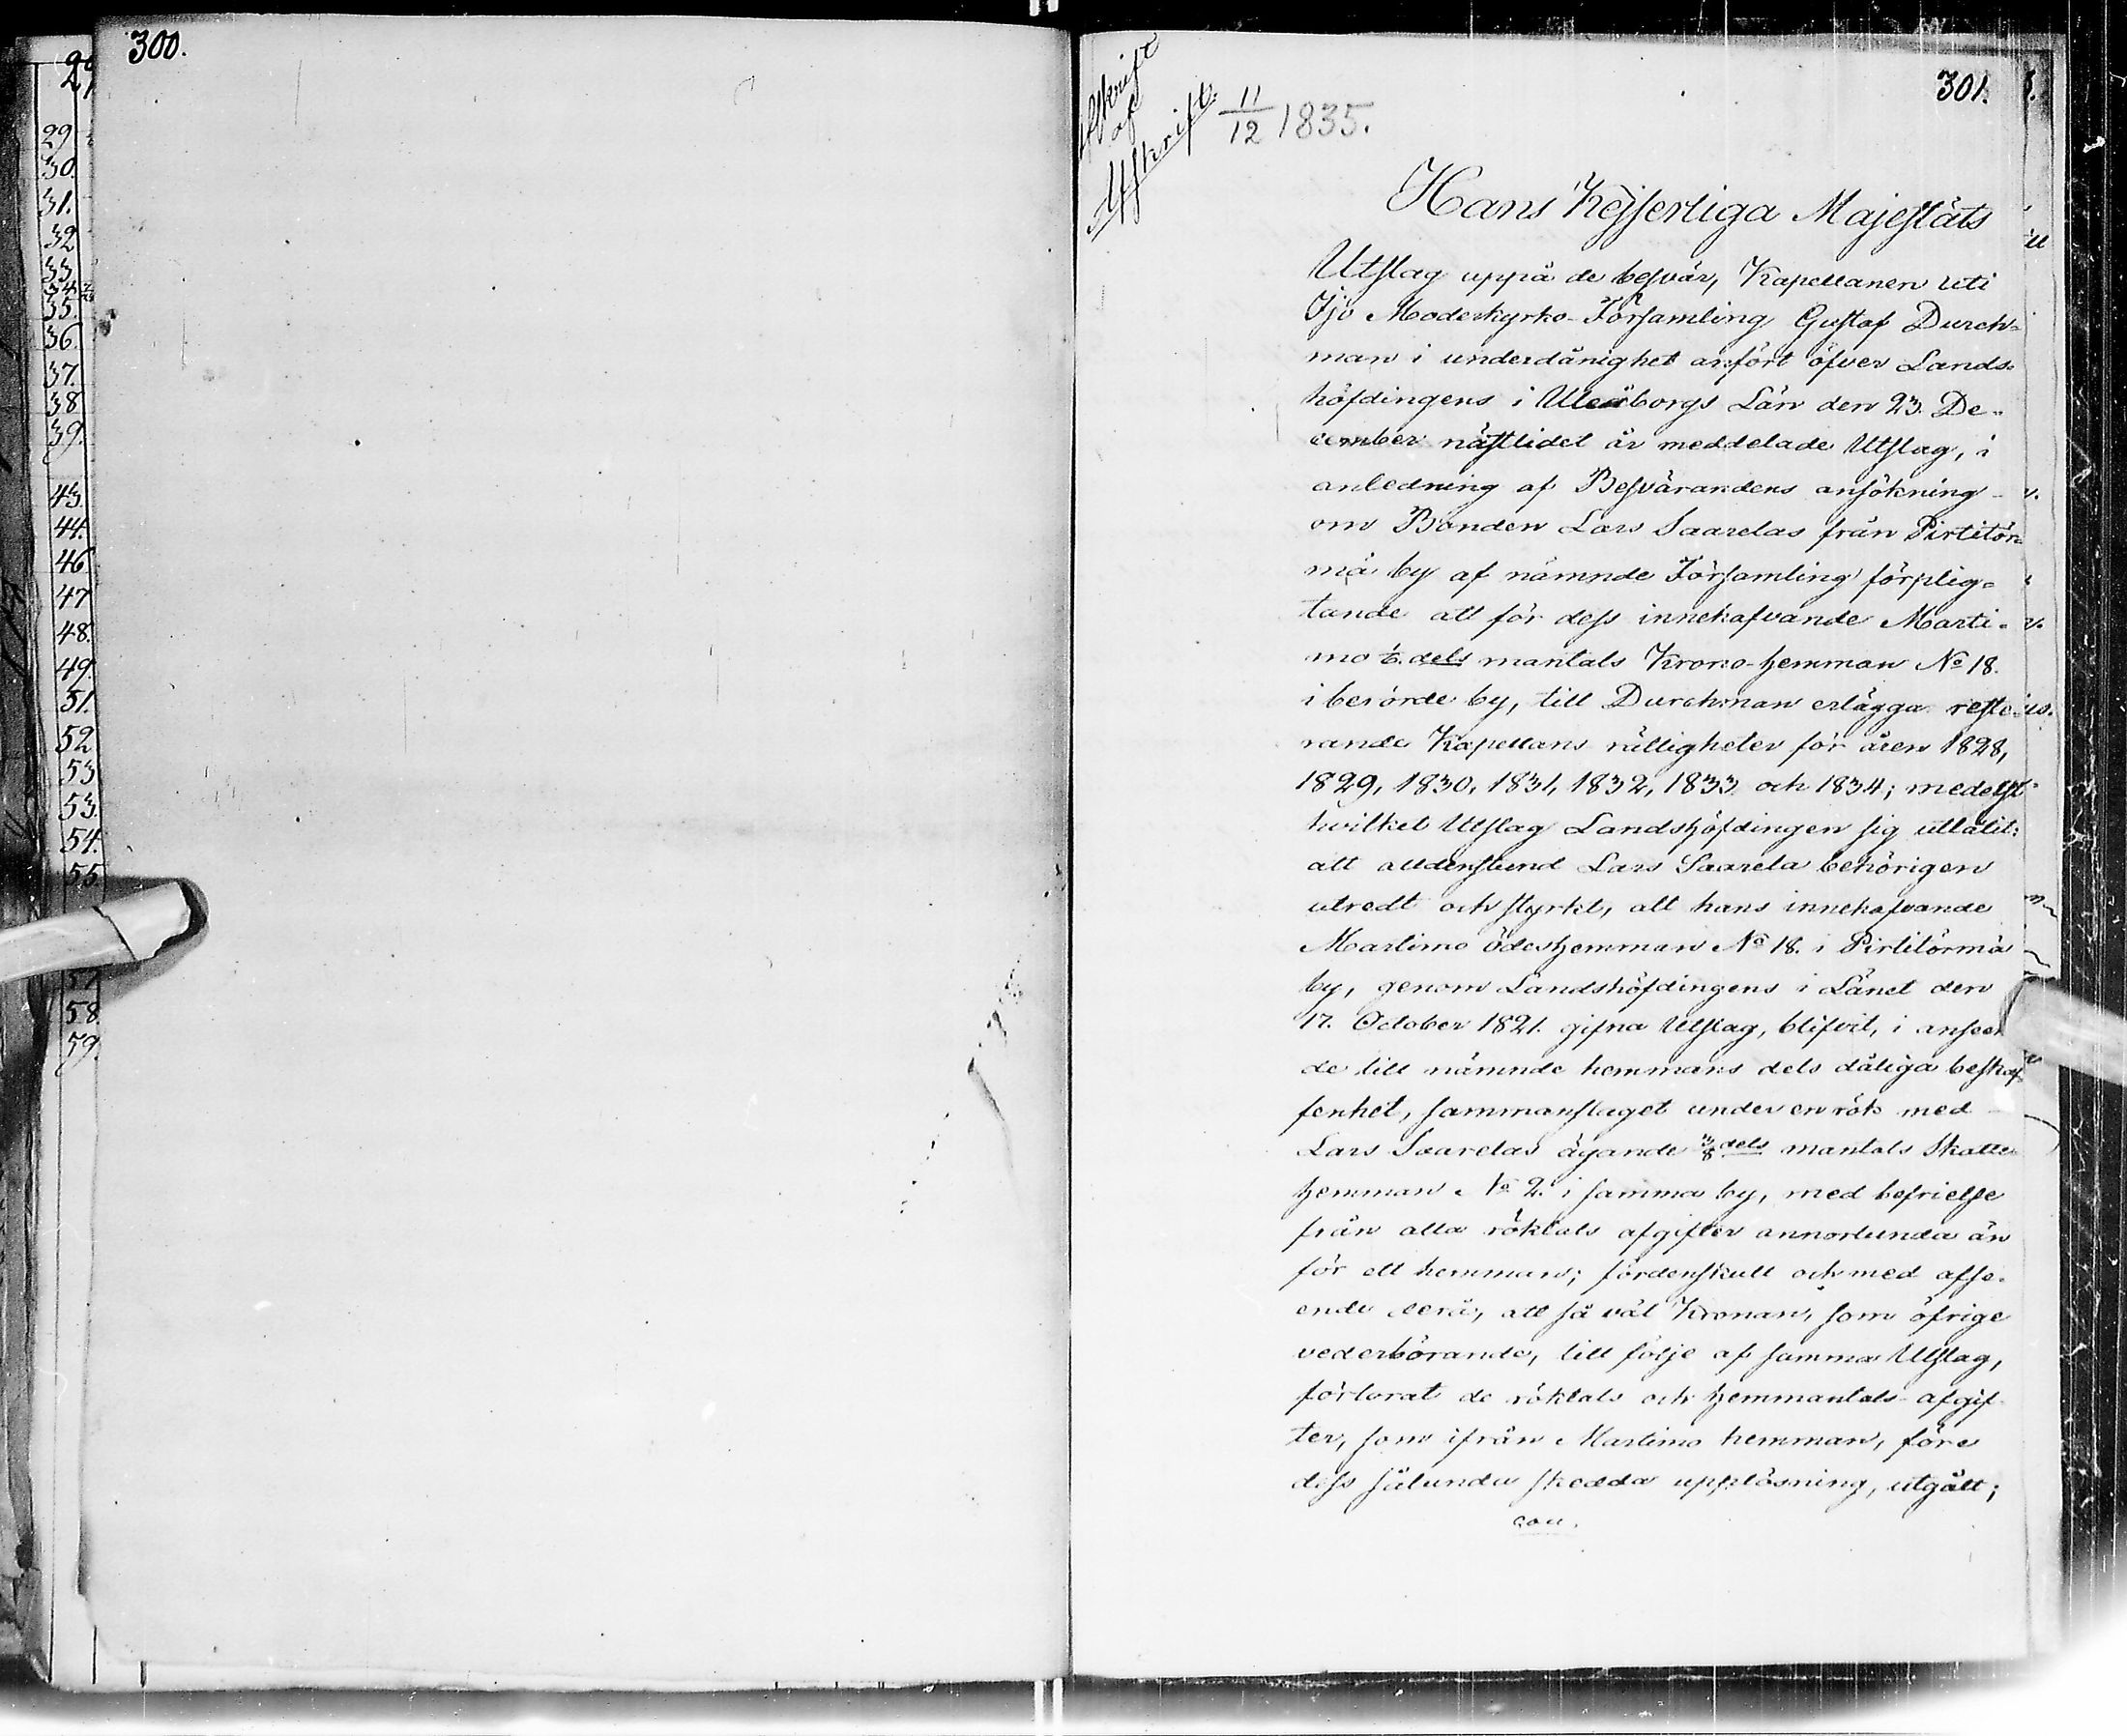 300.
29
30.
31.
32
33
34
35.
36.
37.
38
39.
43.
44.
46
47
48.
49.
51.
52
53
53.
54.
55.
57
58.
59.
301.
Afskrift
af
Afskrift.
11/12 1835.
Hans Kejserliga Majestäts
Utslag uppå de besvär, Kapellanen uti
Ijo Moderkyrko-Församling Gustaf Durch-
man i underdånighet anfört öfver Lands-
höfdingens i Uleåborgs Län den 23. De-
cember nästlidet år meddelade Utslag, i
anledning af Besvärandens ansökning
om Bonden Lars Saarelas från Pirtitör-
mä by af nämnde Församling förplig-
tande att för dess innehafvande Marti-
mo 1/6. dels mantals Krono-hemman No 18.
i berörde by, till Durchman erlägga reste-
rande Kapellans rättigheter för åren 1828,
1829, 1830, 1831, 1832, 1833 och 1834; medelst
hvilket Utslag Landshöfdingen sig utlåtit:
att alldenstund Lars Saarela behörigen
utredt och styrkt, att hans innehafvande
Martimo ödeshemman No 18. i Pirtitörmä
by, genom Landshöfdingens i Länet den
17. October 1821. gifna Utslag, blifvit, i anseen
de till nämnde hemmans dels dåliga beskaf-
fenhet, sammanslaget under en rök med
Lars Saarelas ägande 3/8 dels mantals Skatte-
hemman No 2. i samma by, med befrielse
från alla röktals afgifter annorlunda än
för ett hemman; fördenskull och med afse-
ende derå, att så väl Kronan, som öfrige
vederbörande, till följe af samma Utslag,
förlorat de röktals och hemmantals-afgif-
ter, som ifrån Martimo hemman, före
dess sålunda skedda upplösning, utgått;